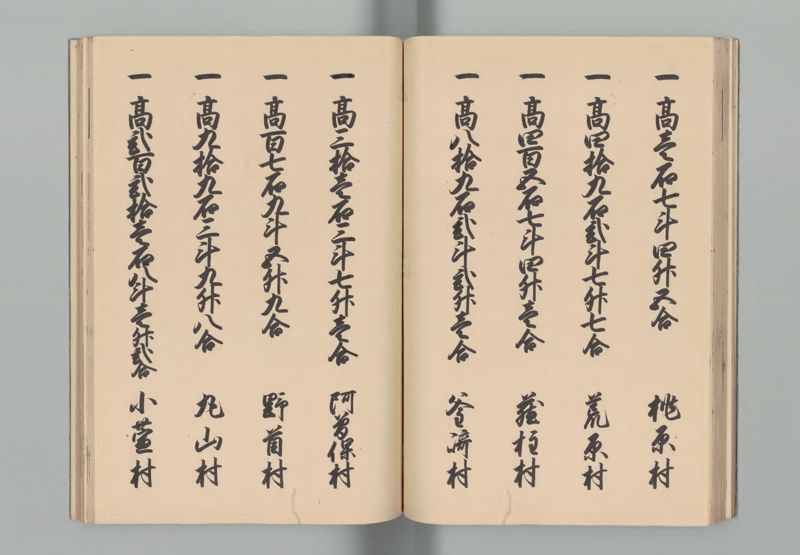 一 高壱石七斗四升五合 桃原村
一 高四拾九石弐斗七升七合 荒原村
一 高四百五石七斗四升壱合 藤柱村
一 高八拾九石弐斗弐升壱合 釜崎村
一 高三拾壱石三斗七升壱合 阿曽保村
一 高百七石九斗五升九合 野首村
一 高九拾九石三斗九升八合 丸山村
一 高弐百弐拾壱石八斗壱升弐合 小萱村